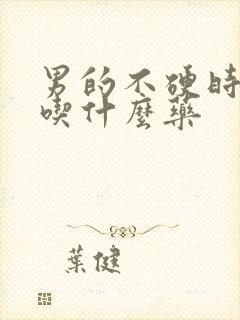 男的不硬時
喫什麼藥
葉健